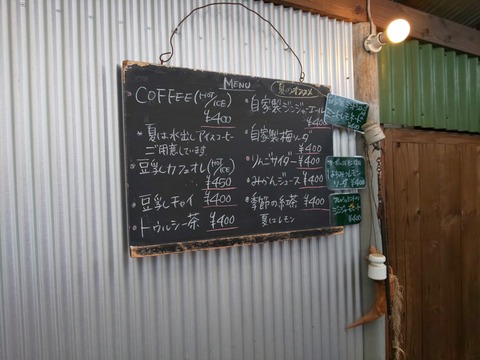 MENU
COFFEE (HOT/ICE)
¥400
*夏は水出しアイスコーヒー
ご用意しています.
・豆乳カフェオレ(HOT/ICE)
¥450
・豆乳チャイ ¥400
・トゥルシー茶 ¥400
夏のオススメ
・自家製ジンジャーエール
¥400
・自家製梅ソーダ
¥400
・りんごサイダー ¥400
・みかんジュース ¥400
・季節の紅茶 ¥400
夏はレモン
はちみつレモン
ソーダ ¥400
¥400